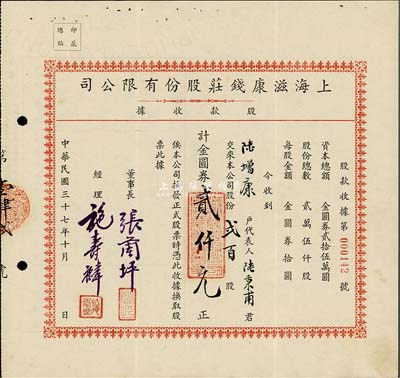 印花
總貼
上海滋康錢莊股份有限公司
股款收據
股款收據第000142號
資本總額 金圓券貳拾伍萬圓
股份總數 貳萬伍仟股
每股金額 金圓券拾圓
今收到
陸增康 戶代表人 陸東甫 君
交來本公司股份 弍百 股
計金圓券貳仟元正
俟本公司換發正式股票時憑此收據換取股
票此據
董事長 張蘭坪
經理 施壽麟
中華民國三十七年十月 日
第
號